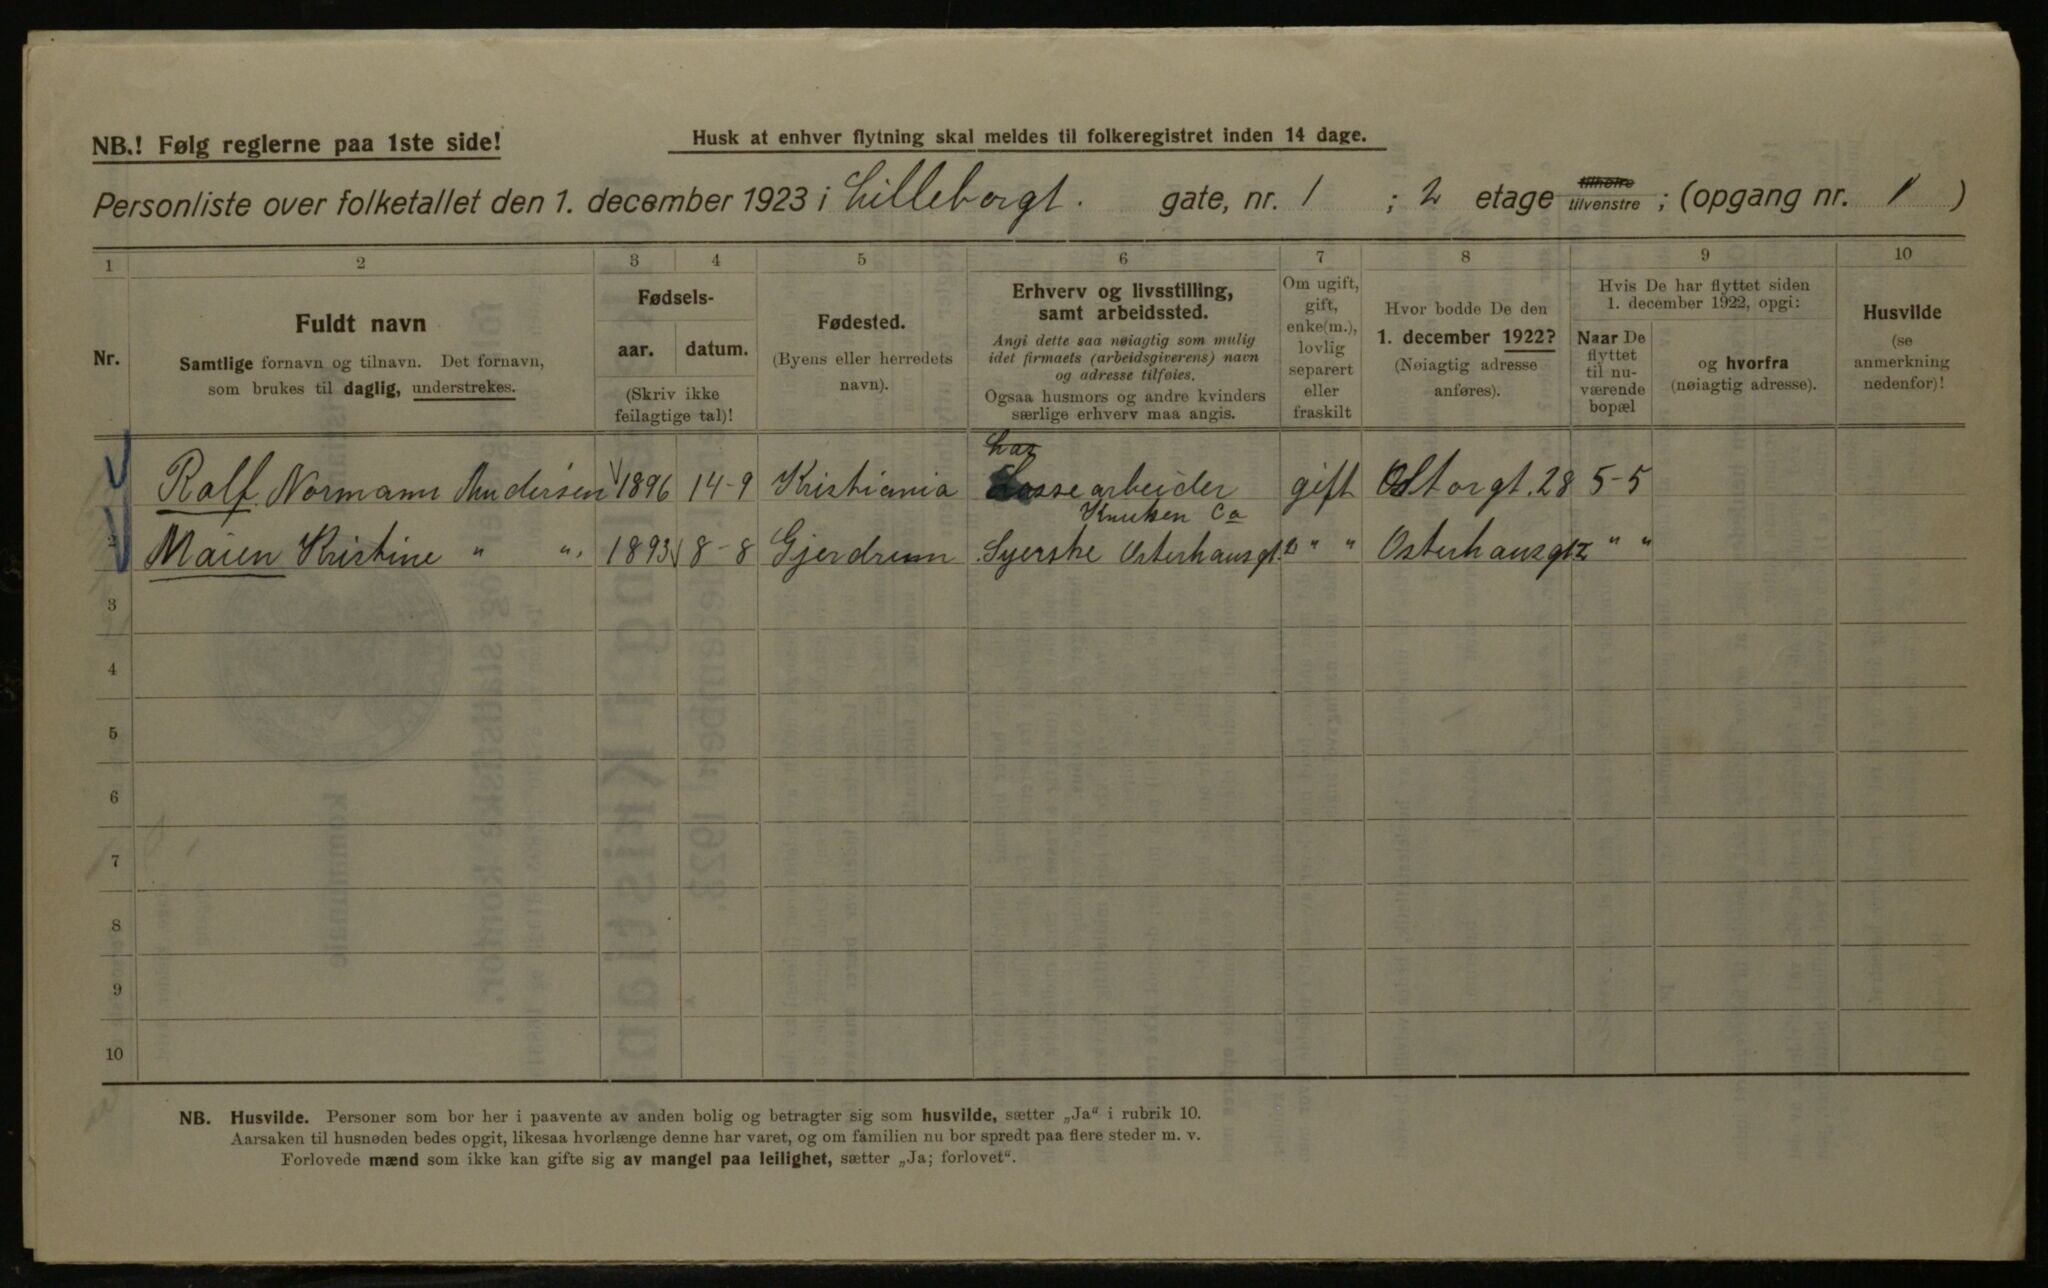 NB.! Følg reglerne paa 1ste side!
Husk at enhver flytning skal meldes til folkeregistret inden 14 dage.
Personliste over folketallet den 1. december 1923 i Lilleborgt. gate, nr. 1 ; 2 etage tilhøire tilvenstre ; (opgang nr. 1 )
1 2 3 4 5 6 7 8 9 10
Nr.
Fuldt navn
Samtlige fornavn og tilnavn. Det fornavn,
som brukes til daglig, understrekes.
Fødsels-
aar. datum.
(Skriv ikke
feilagtige tal)!
Fødested.
(Byens eller herredets
navn).
Erhverv og livsstilling,
samt arbeidssted.
Angi dette saa nøiagtig som mulig
idet firmaets (arbeidsgiverens) navn
og adresse tilføies.
Ogsaa husmors og andre kvinders
særlige erhverv maa angis.
Om ugift,
gift,
enke(m.),
lovlig
separert
eller
fraskilt
Hvor bodde De den
1. december 1922?
(Nøiagtig adresse
anføres).
Hvis De har flyttet siden
1. december 1922, opgi:
Naar De
flyttet
til nu-
værende
bopæl
og hvorfra
(nøiagtig adresse).
Husvilde
(se
anmerkning
nedenfor)!
Ralf Normann Andersen 1896 14-9 Kristiania arbeider gift Storgt. 28 5-5
Knutsen Co
Maien Kristine " " 1893 8-8 Gjerdrum Syerske Osterhausgt. " " Osterhausgt " "
3
4
5
6
7
8
9
10
NB. Husvilde. Personer som bor her i paavente av anden bolig og betragter sig som husvilde, sætter „Ja“ i rubrik 10.
Aarsaken til husnøden bedes opgit, likesaa hvorlænge denne har varet, og om familien nu bor spredt paa flere steder m. v.
Forlovede mænd som ikke kan gifte sig av mangel paa leilighet, sætter „Ja; forlovet“.